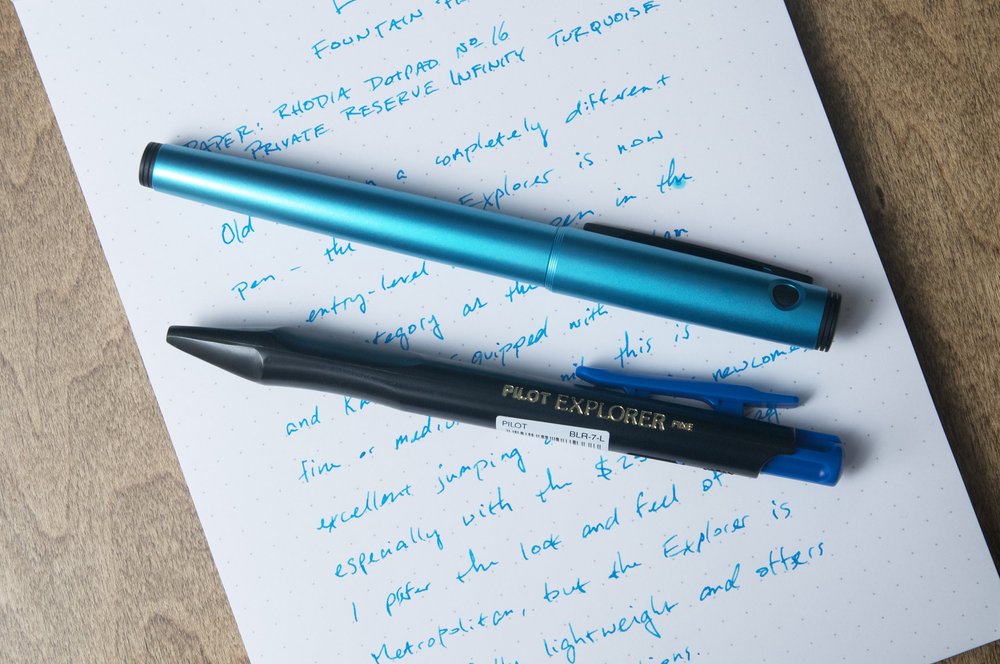 FOUNTAIN
PAPER: RHODIA DOTPAD No 16
PRIVATE RESERVE INFINITY TURQUOISE
Old in a completely different
pen - the Explorer is now
entry-level pen in the
category as the
and equipped with this is
fine or medium newcomer
excellent jumping
especially with the $
I prefer the look and feel of
Metropolitan, but the Explorer is
lightweight and offers
PILOT EXPLORER FINE
PILOT BLR-7-L